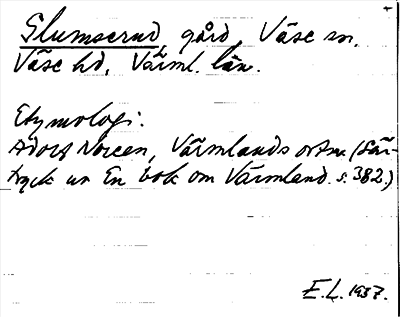 Slumserud, gård, Väse sn.
Väse hd, Värml. län.
Etymologi:
Adolf Noreen, Värmlands ortn. (Sär-
tryck ur En bok om Värmland. s. 382.)
E.L. 1937.